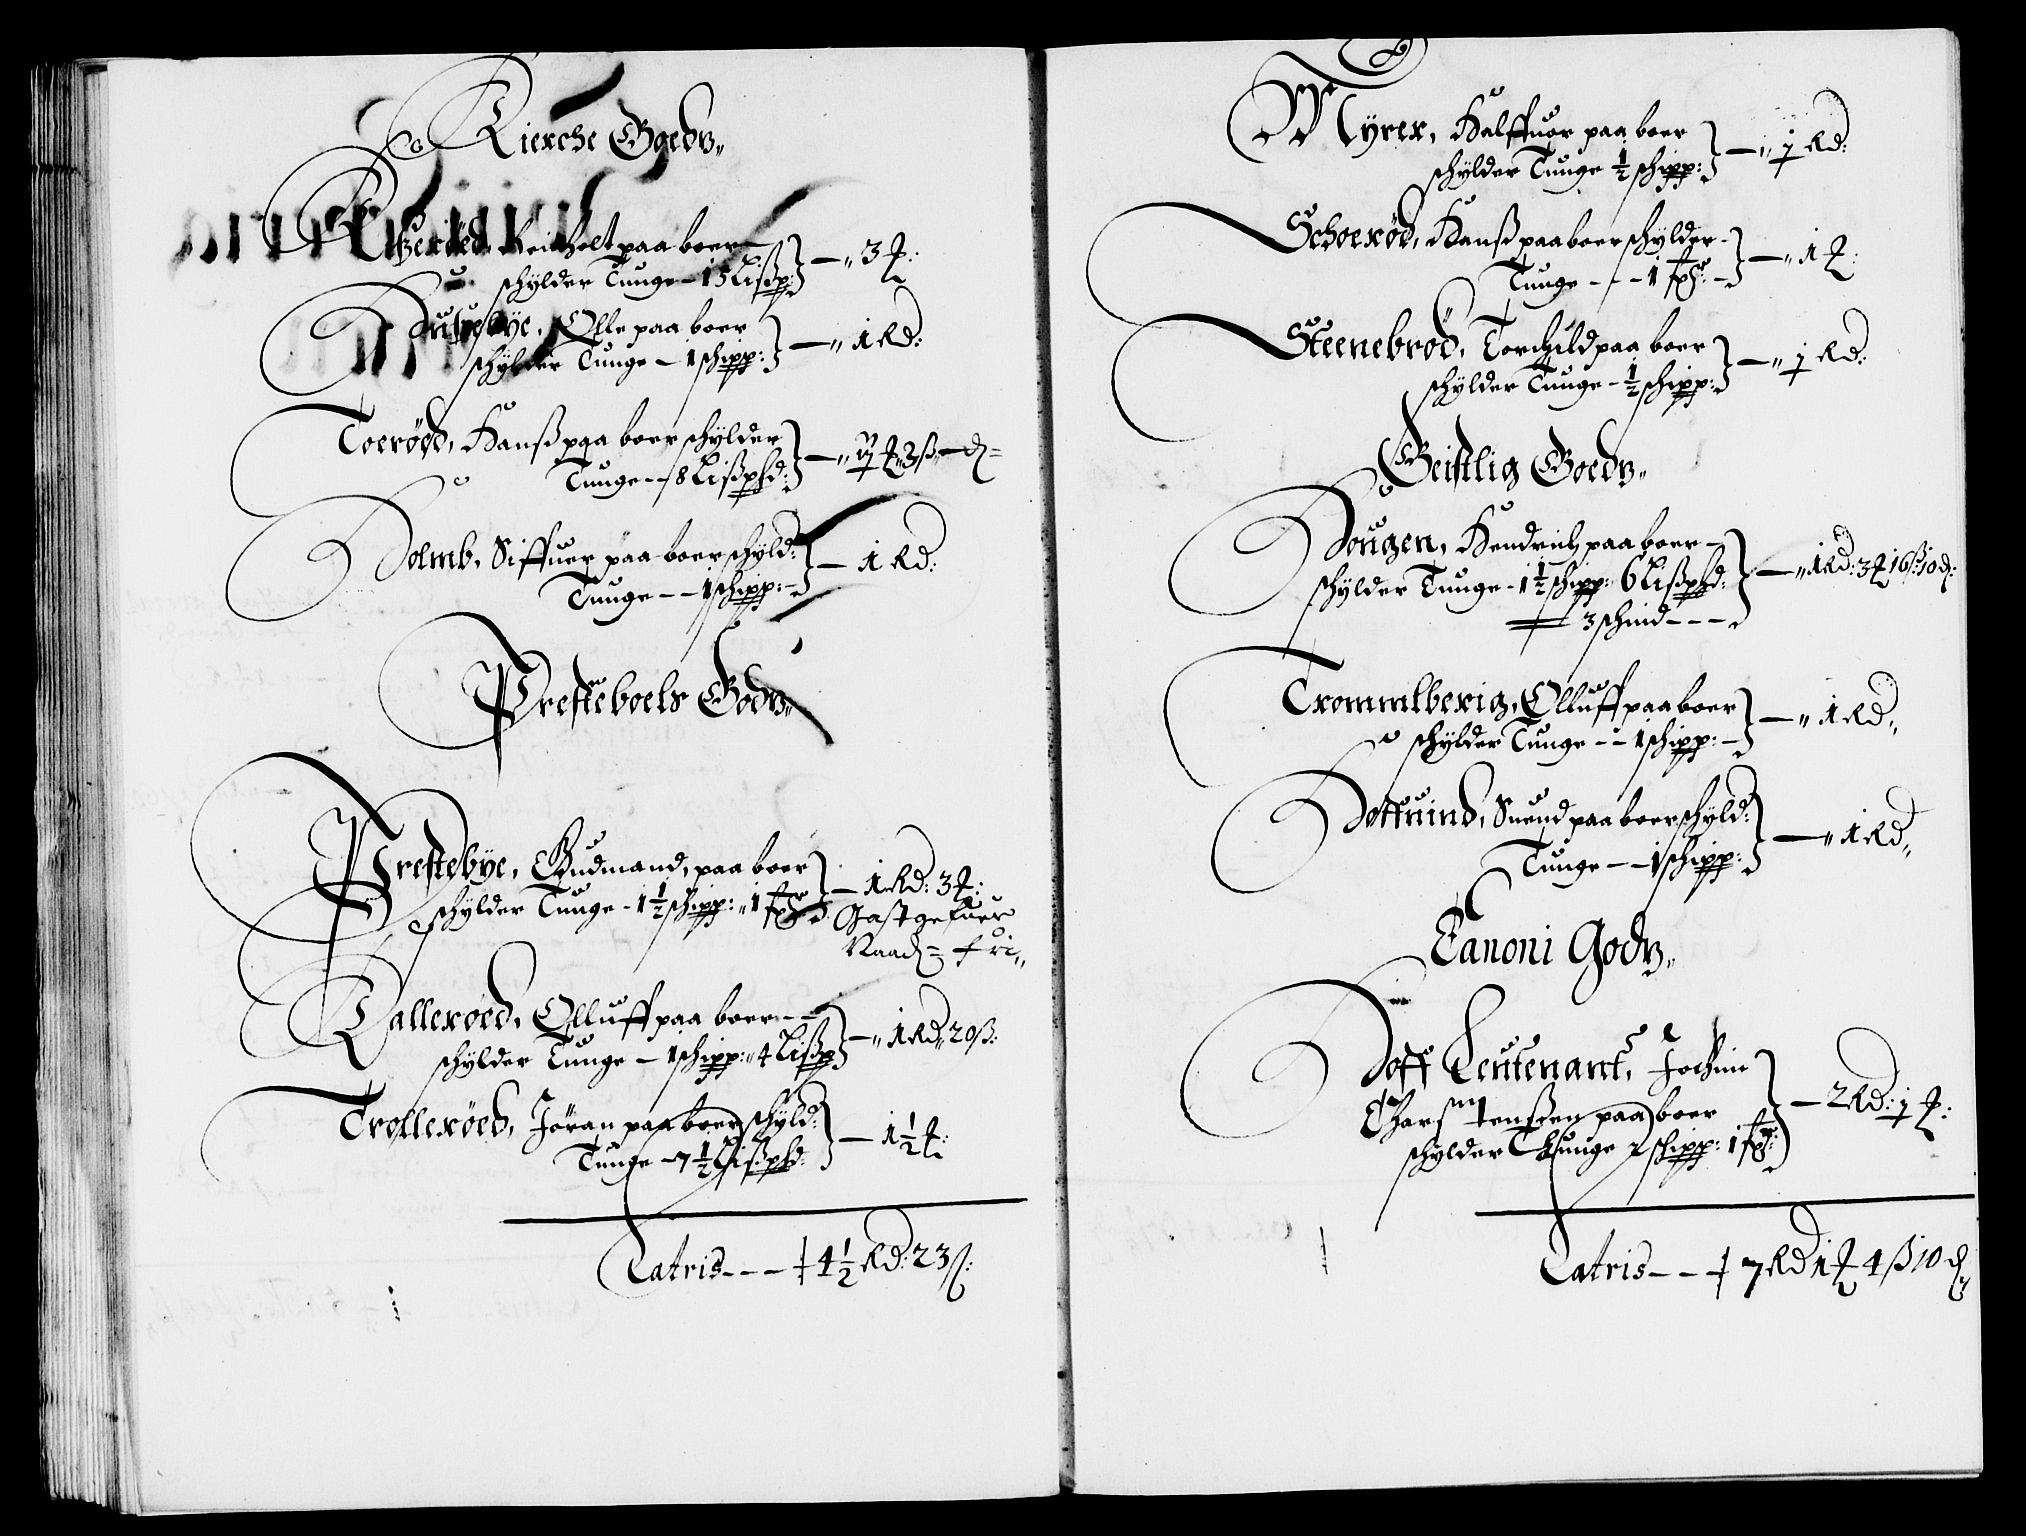 Kierche Goedtz,,
Berøed Reinholt paa boer
schylder Tunge - 15 Lißp:} - ,, 3 ƒ:
Huusebye, Olle paa boer
schylder Tunge - 1 schipp:} - ,, 1 Rd:
Toerøed, Hanß paa boer schylder
Tunge -- 8 Lißpd:} - ,,
Holmb, Siffuer paa boer schyld:
Tunge -- 1 schipp:-} - 1 Rd:
Presteboels Godtz,,
Prestebye, Gudmand, paa boer
schylder Tunge - 1 1/2 schipp: ,, 1 } - 1 Rd: 3 ƒ:
Gastgefuer
fri,,
Kallerøed, Olluff paa boer --
schylder Tunge - 1 schipp: ,, 4 Lißp} - ,, 1 Rd,, 20 ß:
Trollerøed, Jöran paa boer schyld:
Tunge - 7 1/2 Lißpd:} - 1 1/2 ƒ:
Latris --- 4 1/2 Rd: 23 ß:
Myrer, Halffuor paa boer
schylder Tunge 1/2 schipp:} - ,, 1/2 Rd:
Schoerød, Hanß paa boer schylder -
Tunge --- 1 -} - ,, 1 ƒ:
Steenebrød, Torchild paa boer
schylder Tunge - 1/2 schipp:} - ,, 1/2 Rd:
Geistlig Goedtz,,
Hougen, Hendrich paa boer -
schylder Tunge - 1 1/2 schipp: 6 Lißpd:} - ,, 1 Rd: 3 ƒ 16 ß: 10 d:
3 schind ---
Trommlberig, Olluff paa boer
schylder Tunge -- 1 schipp: -} - ,, 1 Rd,,
Hoffuind, Suend paa boer schyld:
Tunge -- 1 schipp:} - ,, 1 Rd,,
Canoni Godtz,,
Hoff Leutenant, Jochim
Charstenßen paa boer
schylder Tunge 2 schipp: 1 } - 2 Rd: 1 ƒ:
Latris -- 7 Rd 1 ƒ 4 ß 10 d,,